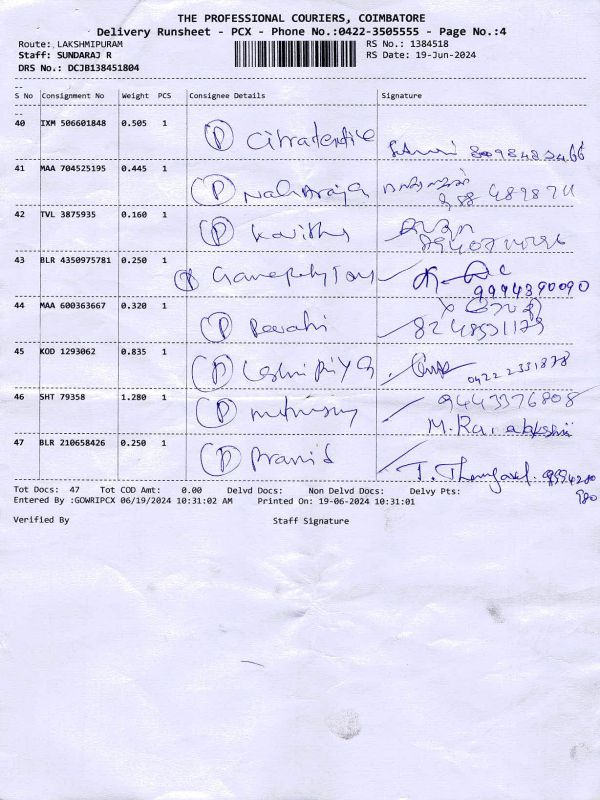 THE PROFESSIONAL COURIERS, COIMBATORE
Delivery Runsheet - PCX - Phone No.:0422-3505555 - Page No.:4
Route: LAKSHMIPURAM RS No.: 1384518
Staff: SUNDARAJ R RS Date: 19-Jun-2024
DRS No.: DCJB138451804
S No Consignment No Weight PCS Consignee Details Signature
40 IXM 506601848 0.505 1 (P)
41 MAA 704525195 0.445 1 (P) Nagaraja
42 TVL 3875935 0.160 1 (P) Kavitha
43 BLR 4350975781 0.250 1 (P)
9994390090
44 MAA 600363667 0.320 1 (P) Revathi
8248531173
45 KOD 1293062 0.835 1 (P) 0422 2331878
46 SHT 79358 1.280 1 (P) 9443376808
47 BLR 210658426 0.250 1 (P) Pramid
Tot Docs: 47 Tot COD Amt: 0.00 Delvd Docs: Non Delvd Docs: Delvy Pts:
Entered By :GOWRIPCX 06/19/2024 10:31:02 AM Printed On: 19-06-2024 10:31:01
Verified By Staff Signature